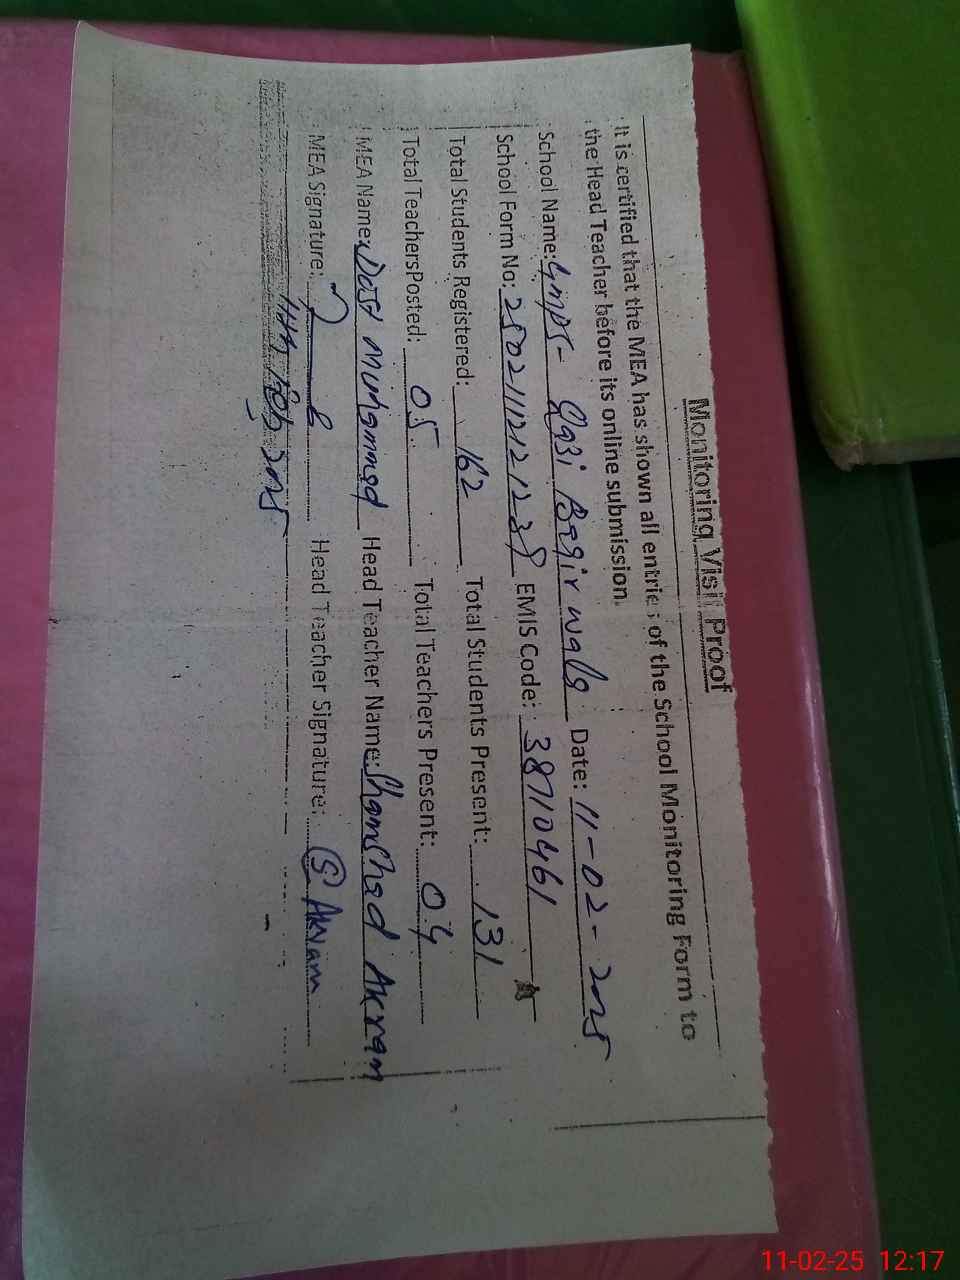 Monitoring Visit Proof
It is certified that the MEA has shown all entries of the School Monitoring Form to
the Head Teacher before its online submission.
School Name: GMPS- Qazi Baqir wala Date: 11-02-2025
School Form No: EMIS Code: 38710461
Total Students Registered: 162 Total Students Present: 131
Total Teachers Posted: 05 Total Teachers Present: 04
MEA Name: Dost Muhammad Head Teacher Name: Shamshad Akram
MEA Signature: Head Teacher Signature: S Akram
11th Feb, 2025
11-02-25 12:17